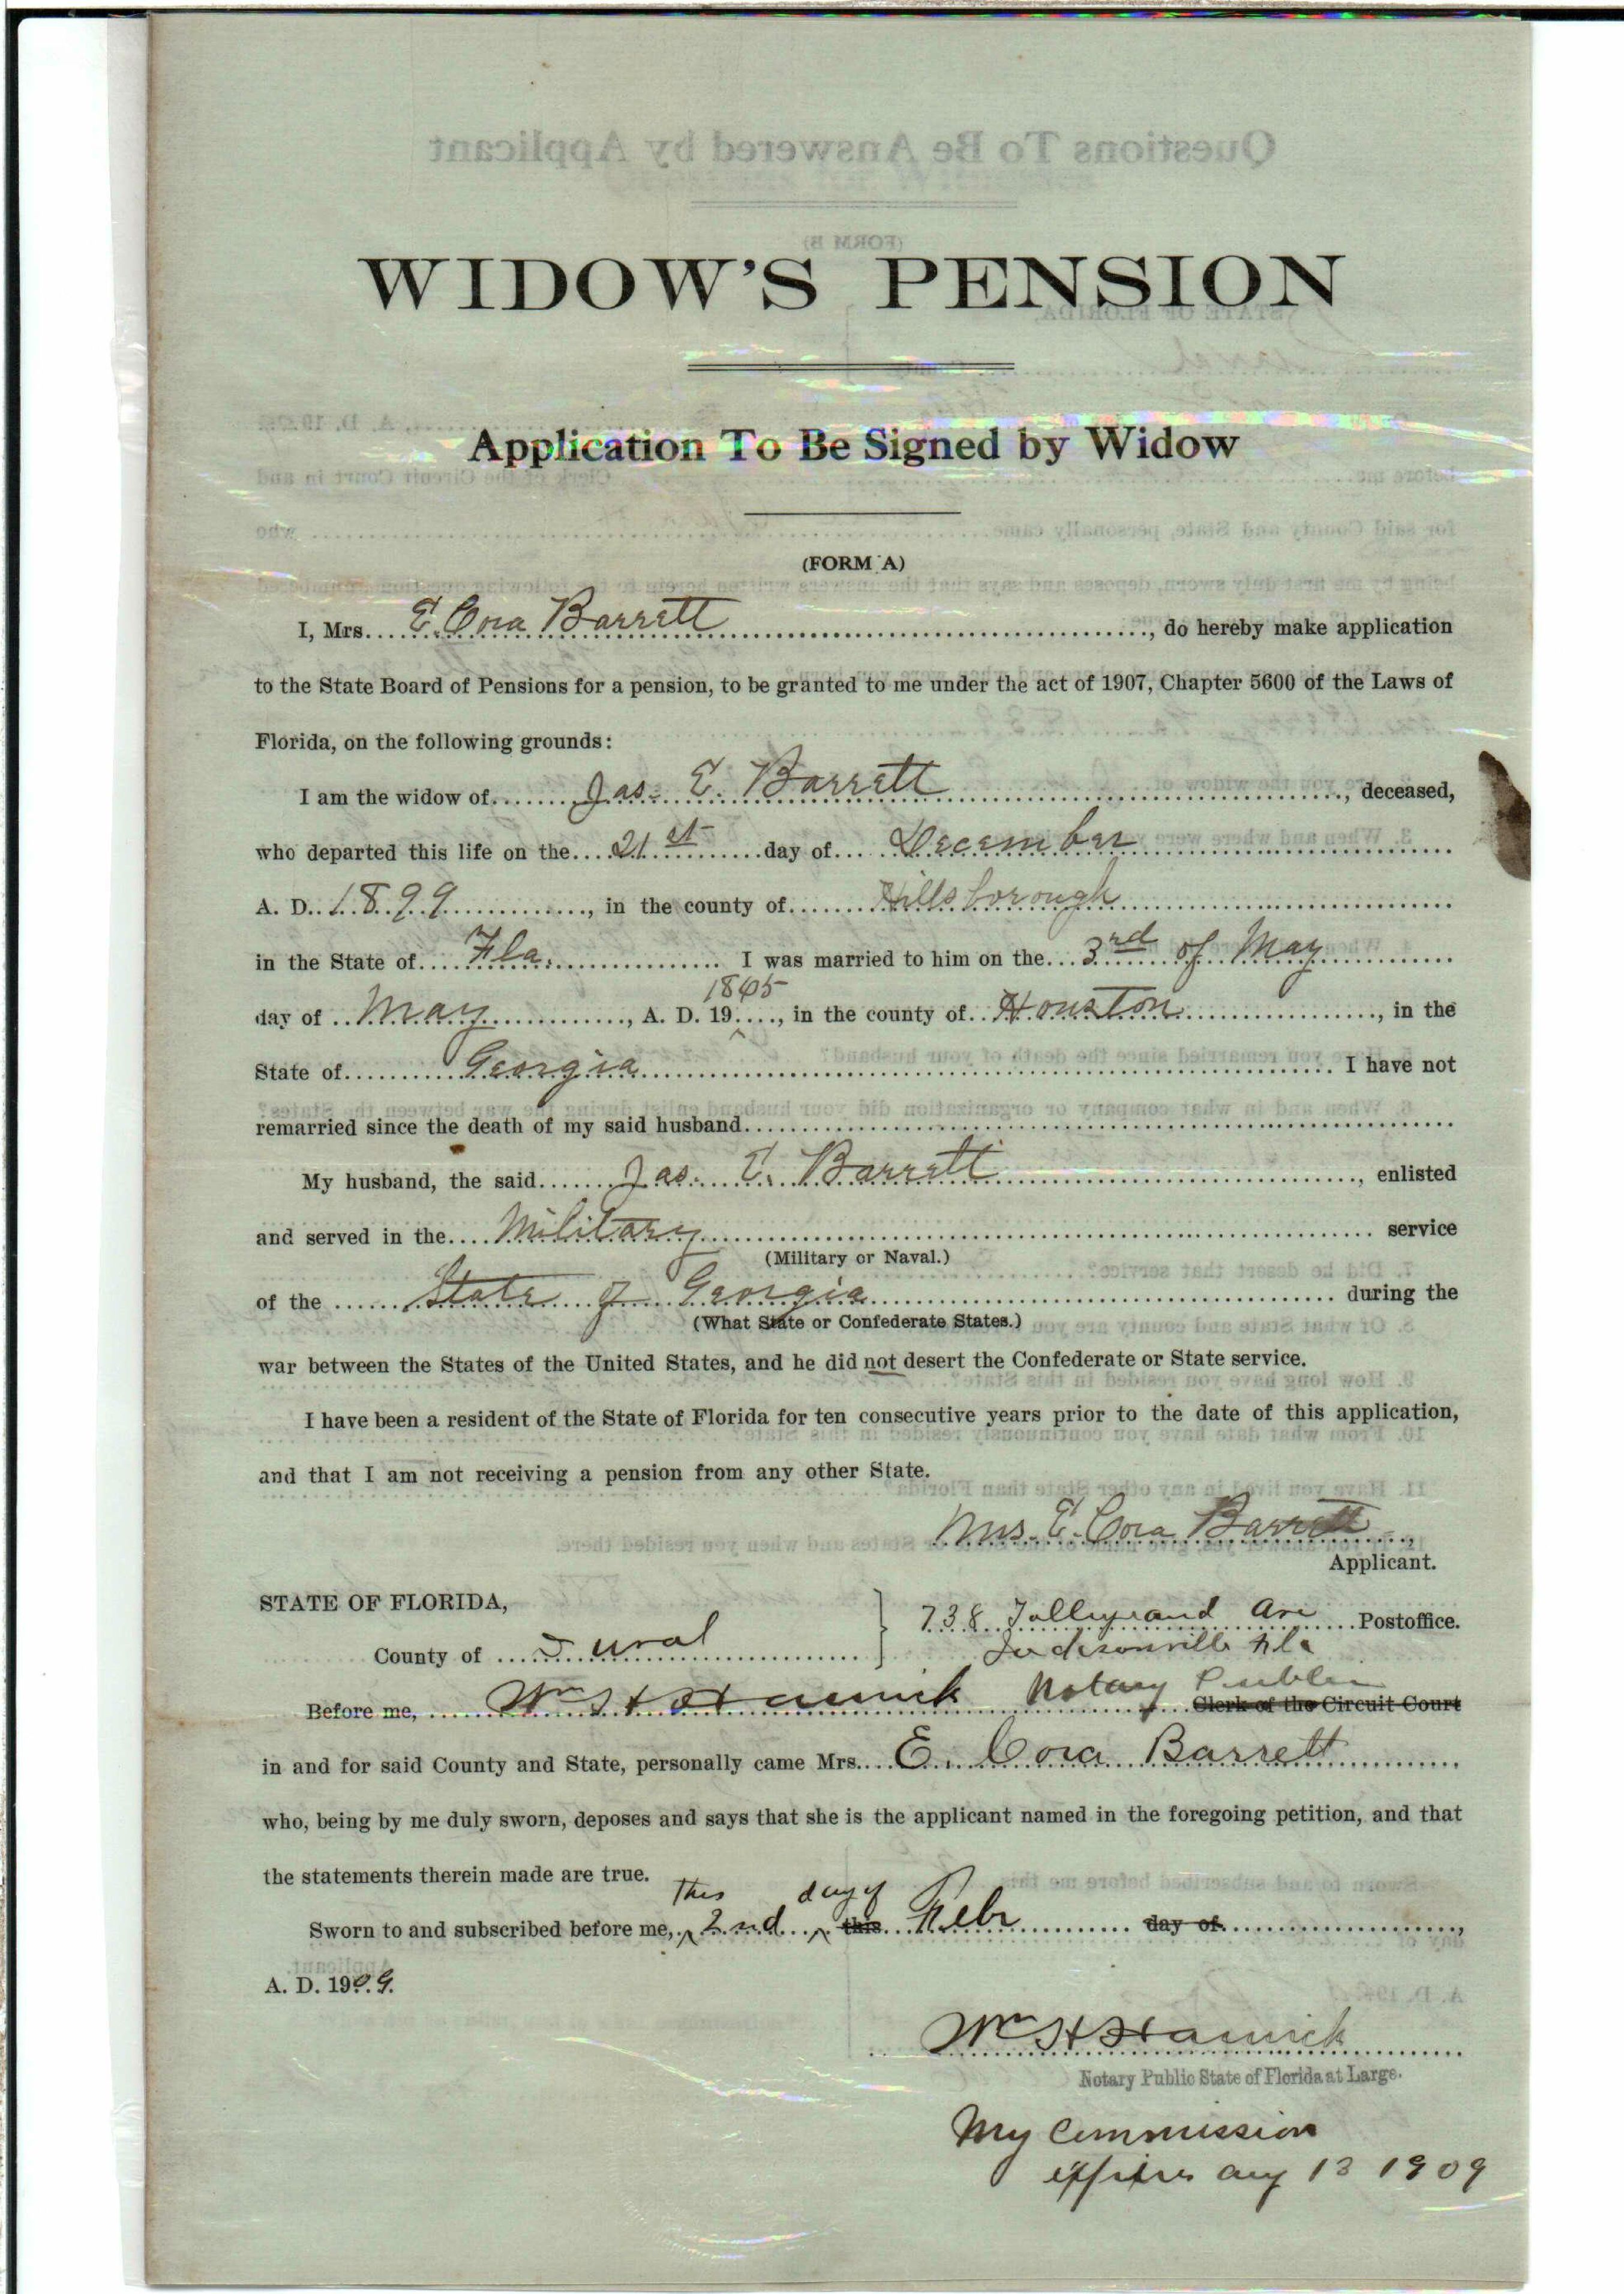 WIDOW'S PENSION
Application To Be Signed by Widow
(FORM A)
I, Mrs. E. Cora Barrett, do hereby make application
to the State Board of Pensions for a pension, to be granted to me under the act of 1907, Chapter 5600 of the Laws of
Florida, on the following grounds:
I am the widow of Jas. E. Barrett, deceased,
who departed this life on the 21st day of December
A. D. 1899, in the county of Hillsborough
in the State of Fla. I was married to him on the 3rd of May
1865
day of May, A. D. 19...., in the county of Houston, in the
State of Georgia I have not
remarried since the death of my said husband
My husband, the said Jas. E. Barrett, enlisted
and served in the Military service
(Military or Naval.)
of the State of Georgia during the
(What State or Confederate States.)
war between the States of the United States, and he did not desert the Confederate or State service.
I have been a resident of the State of Florida for ten consecutive years prior to the date of this application,
and that I am not receiving a pension from any other State.
Mrs. E. Cora Barrett,
Applicant.
STATE OF FLORIDA,
738 Talleyrand Ave Postoffice.
County of Duval Jacksonville Fla
Before me, Wm H Notary Public Clerk of the Circuit Court
in and for said County and State, personally came Mrs. E. Cora Barrett
who, being by me duly sworn, deposes and says that she is the applicant named in the foregoing petition, and that
the statements therein made are true.
This day of
Sworn to and subscribed before me, 2nd this Febr day of ,
A. D. 1909.
Wm H
Notary Public State of Florida at Large.
My Commission
expires Aug 13 1909